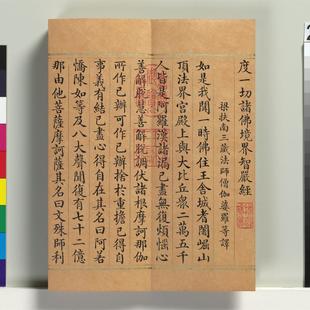 度一切諸佛境界智嚴經
梁扶南三藏法師僧伽婆羅等譯
如是我聞一時佛住王舍城耆闍崛山
頂法界宮殿上與大比丘衆二萬五千
人皆是阿羅漢諸漏已盡無復煩惱心
善解脫慧善解脫調伏諸根摩訶那伽
所作已辦可作已辦捨於重擔已得自
事義有結已盡心得自在其名曰阿若
憍陳如等及八大聲聞復有七十二億
那由他菩薩摩訶薩其名曰文殊師利